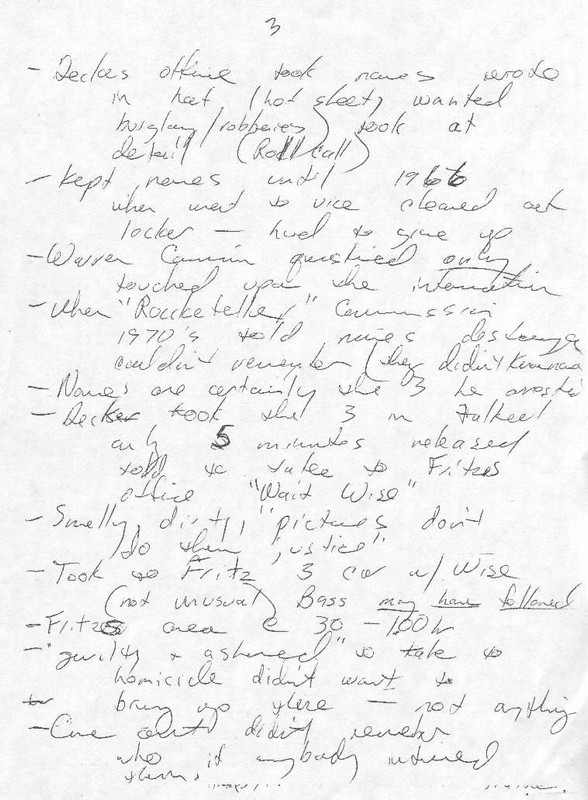 3
- Deckers office took names wrote
in hat (hot sheet, wanted
burglary/robberies) took at
detail (Roll call)
- Kept names until 1966
when went to vice cleaned out
locker — had to give up
- Warren Comm questioned only
touched upon the information
- when "Rockefeller" Commission
1970's told names destroyed
couldn't remember (they didn't
- Names are certainly the 3 he arrested
- Decker took the 3 in talked
only 5 minutes released
told to take to Fritzs
office "Wait Wise"
- Smelly, dirty, "pictures don't
do them justice"
- Took to Fritz 3 car w/ Wise
(not unusual) Bass may have followed
- Fritzs area @ 30 - 1:00 hr
- "guilty & ashamed" to take to
homicide didn't want to
bring up there — not anything
- Came out didn't remember
who if anybody
them.